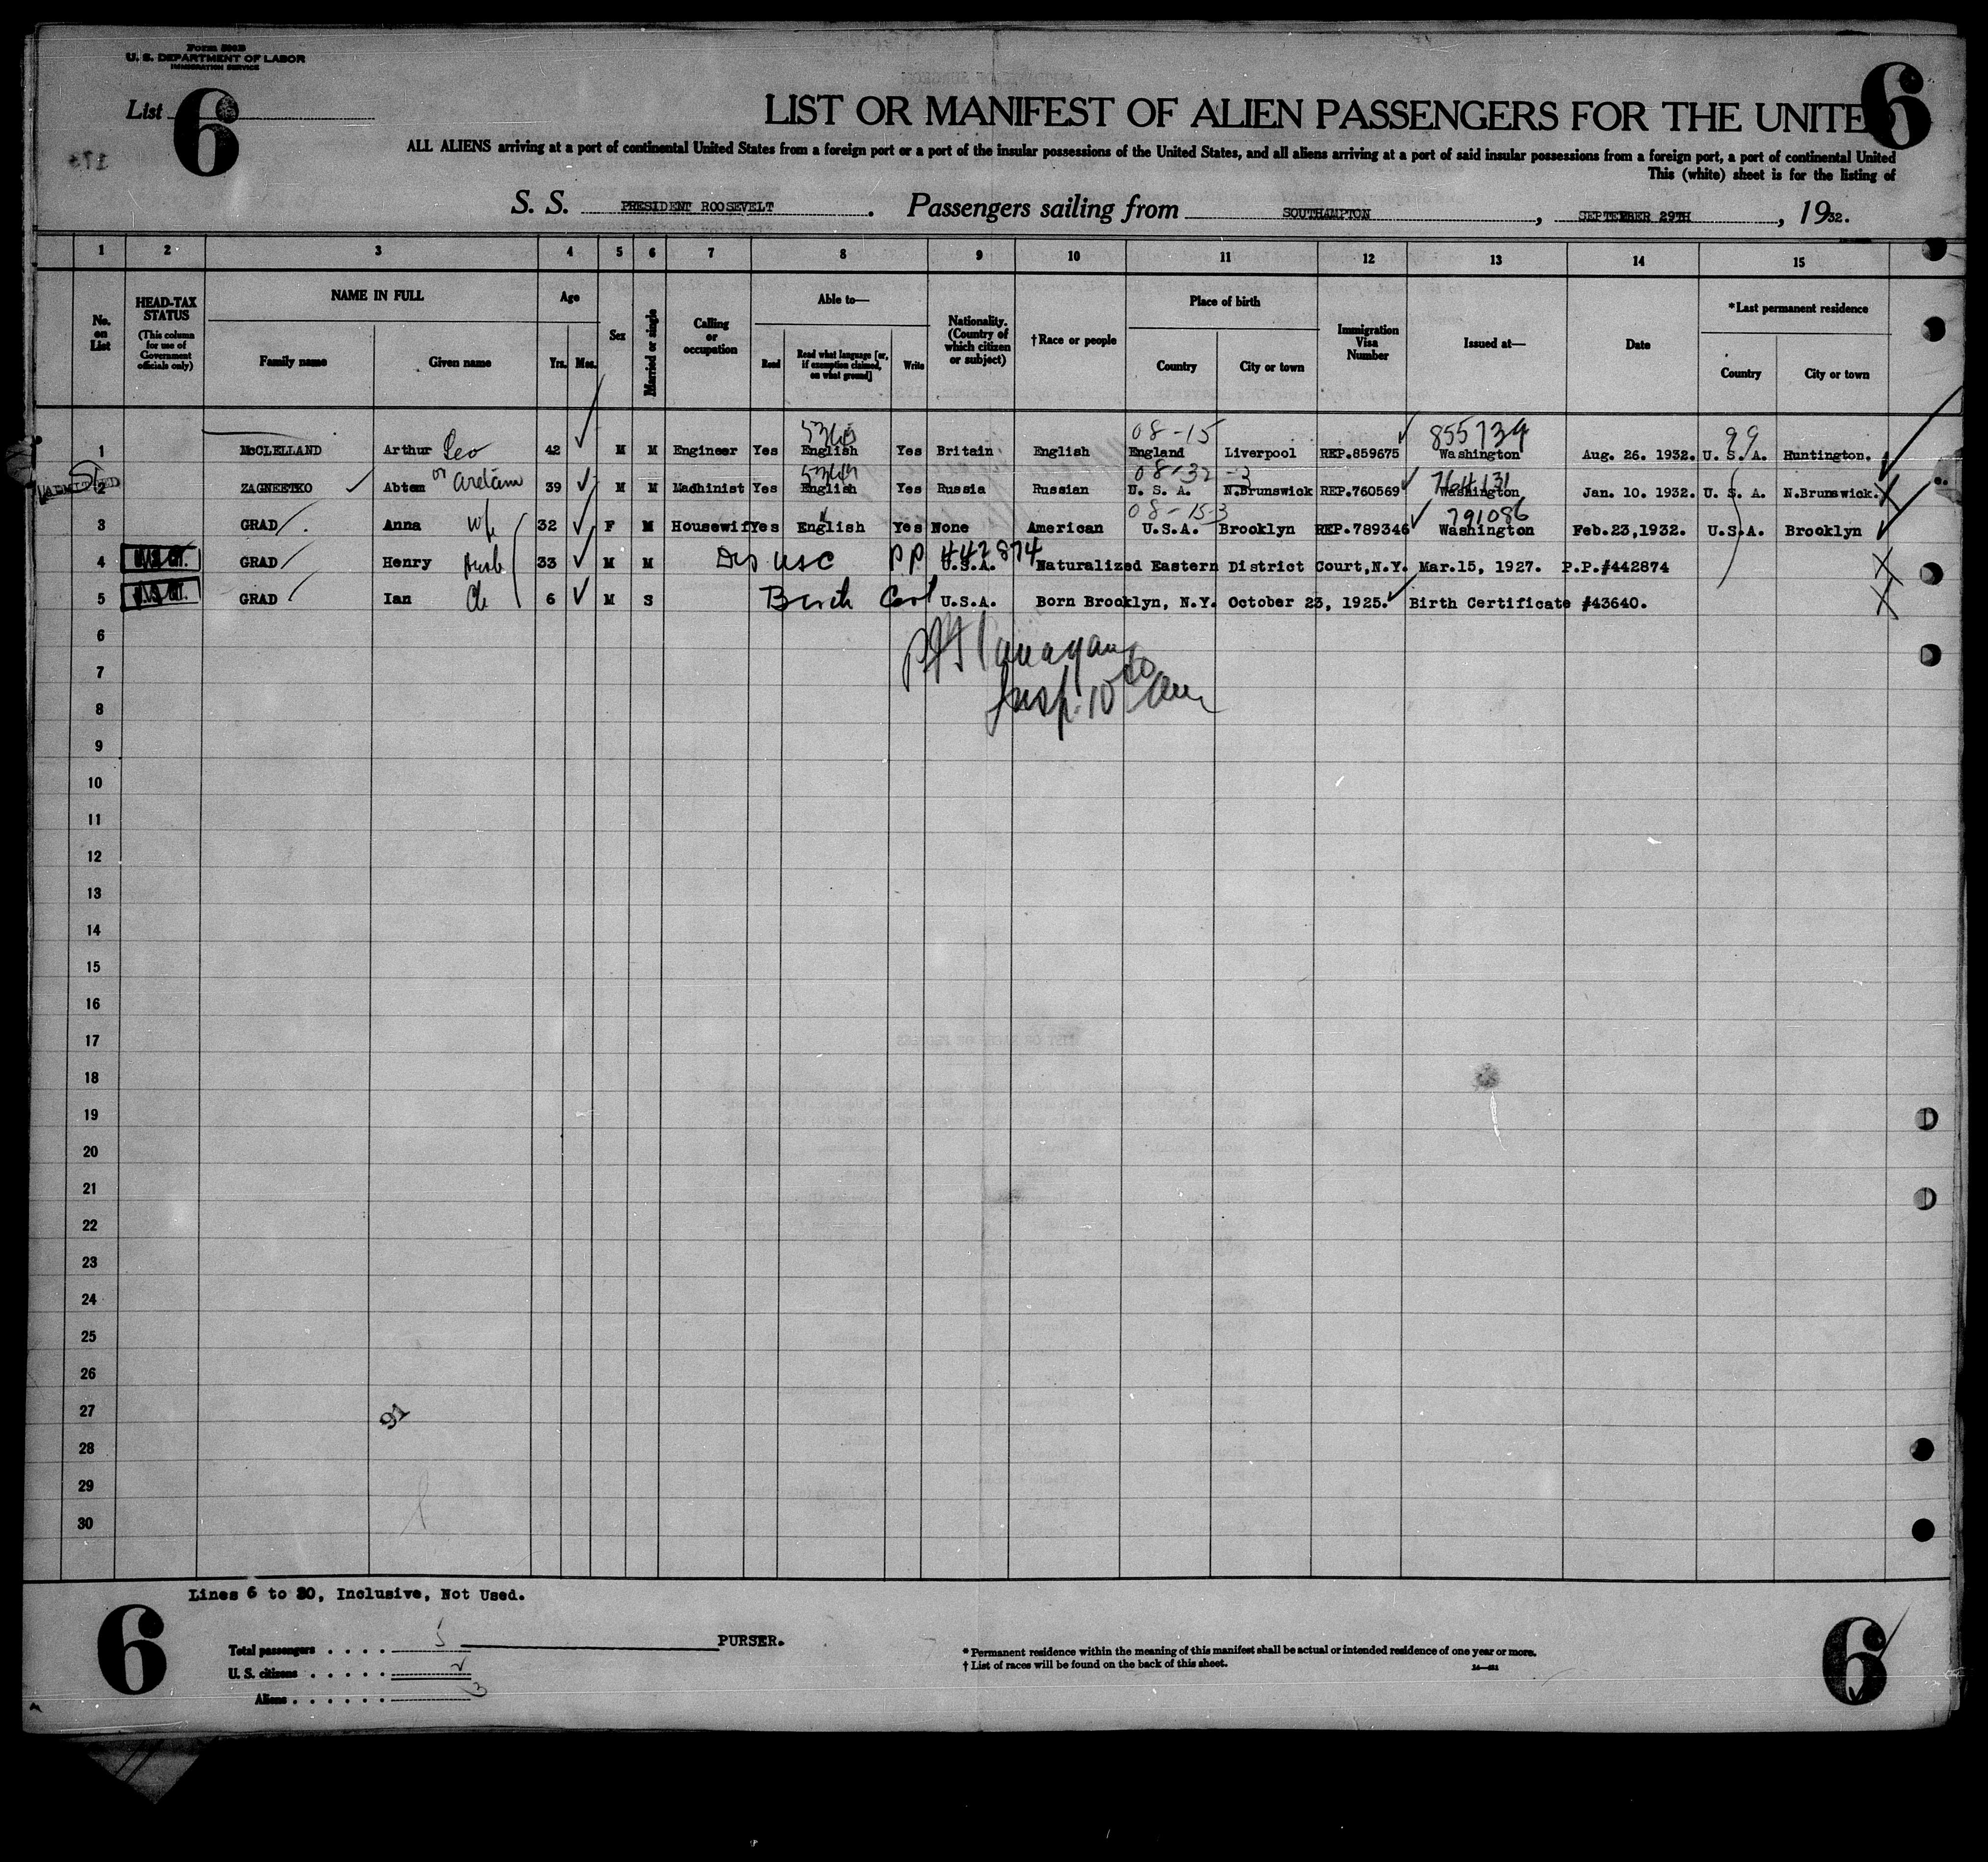 Form 500B
U. S. DEPARTMENT OF LABOR
IMMIGRATION SERVICE
List 6
6
LIST OR MANIFEST OF ALIEN PASSENGERS FOR THE UNITE
ALL ALIENS arriving at a port of continental United States from a foreign port or a port of the insular possessions of the United States, and all aliens arriving at a port of said insular possessions from a foreign port, a port of continental United
This (white) sheet is for the listing of
S. S. PRESIDENT ROOSEVELT. Passengers sailing from SOUTHAMPTON, SEPTEMBER 29TH, 1932.
1 2 3 4 5 6 7 8 9 10 11 12 13 14 15
No. on List
HEAD-TAX STATUS (This column for use of Government officials only)
NAME IN FULL
Family name Given name
Age
Yrs. Mos.
Sex
Married or single
Calling or occupation
Able to—
Read Read what language [or, if exemption claimed, on what ground] Write
Nationality. (Country of which citizen or subject)
†Race or people
Place of birth
Country City or town
Immigration Visa Number
Issued at—
Date
*Last permanent residence
Country City or town
5363 08-15 855734 99
1 McCLELLAND Arthur Leo 42 M M Engineer Yes English Yes Britain English England Liverpool REP.859675 Washington Aug. 26. 1932. U. S. A. Huntington.
or Aretam 08-32-3 764131
2 ZAGNEETKO Abtem 39 M M Madhinist Yes English Yes Russia Russian U. S. A. N.Brunswick REP.760569 Washington Jan. 10. 1932. U. S. A. N.Brunswick.
08-15-3 791086
3 GRAD Anna wife 32 F M Housewif Yes English Yes None American U.S.A. Brooklyn REP.789346 Washington Feb.23,1932. U.S.A. Brooklyn
4 U.S. CIT. GRAD Henry Husb 33 M M USC PP 442874 U.S.A. Naturalized Eastern District Court,N.Y. Mar.15, 1927. P.P.#442874
5 U.S. CIT. GRAD Ian Ch 6 M S Birth Cert U.S.A. Born Brooklyn, N.Y. October 23, 1925. Birth Certificate #43640.
6
7
Insp. 10 am
8
9
10
11
12
13
14
15
16
17
18
19
20
21
22
23
24
25
26
27
91
28
29
30
Lines 6 to 30, Inclusive, Not Used.
6
Total passengers . . . . 5
PURSER.
U. S. citizens . . . . . 2
Aliens . . . . . . 3
* Permanent residence within the meaning of this manifest shall be actual or intended residence of one year or more.
† List of races will be found on the back of this sheet.
6